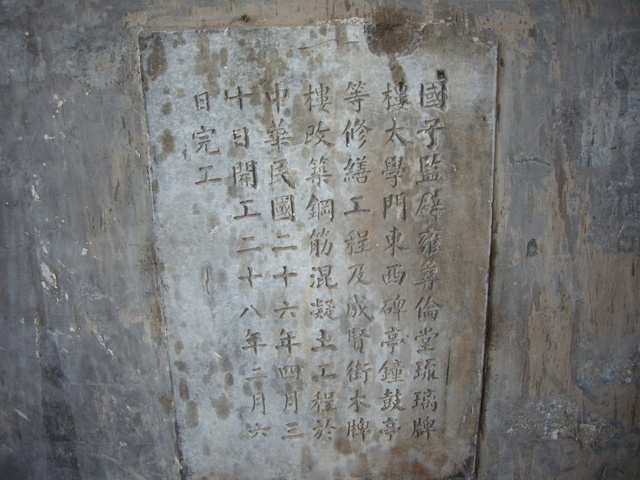 國子監辟雍彝倫堂琉璃牌
樓太學門東西碑亭鐘鼓亭
等修繕工程及成賢街木牌
樓改築鋼筋混凝土工程於
中華民國二十六年四月三
十日開工二十八年二月六
日完工